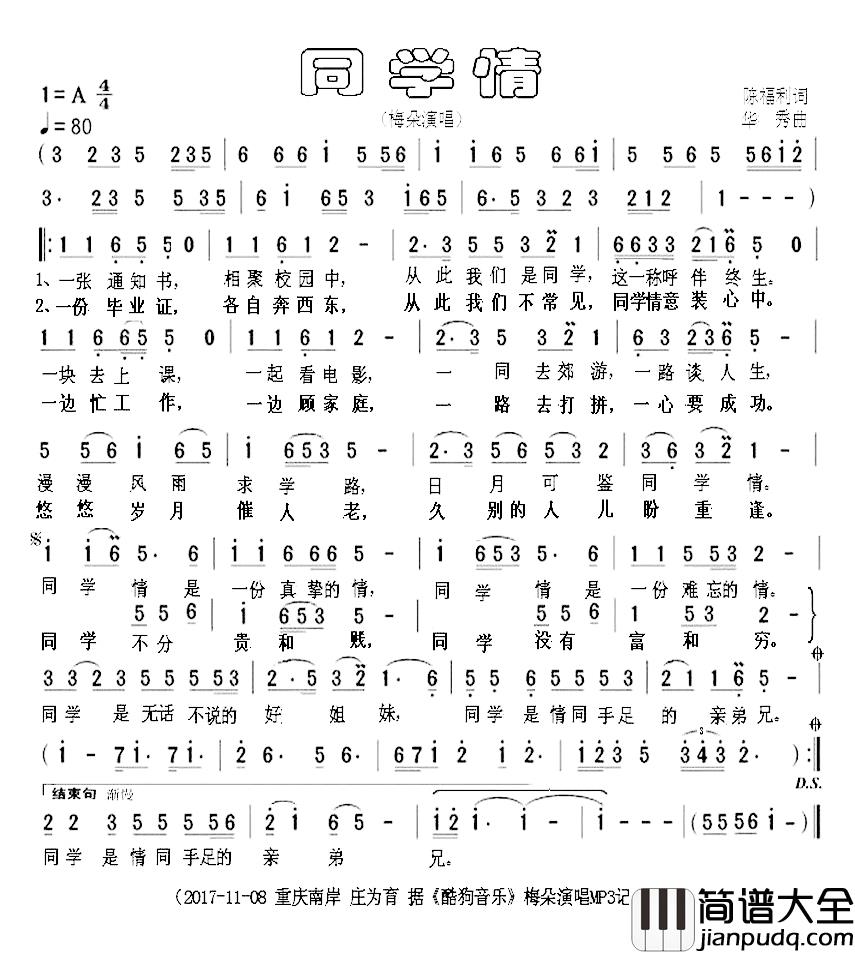 同学情
1=A 4/4
♩=80
（梅朵演唱）
陈福利词
华 秀曲
(3 235 5 235 | 6 6 6 i 5 56 | i i 65 6 6i | 5 5 65 56i2
3· 235 5 535 | 6 i 653 3 i65 | 6· 5 3 2 3 212 | 1 - - - )
‖: 1 1 6 5 5 0 | 1 1 6 1 2 - | 2· 3 5 5 3 2 1 | 6 6 3 3 2 1 6 5 0
1、一张 通知 书， 相聚 校园 中， 从 此 我们 是同 学， 这一称呼 伴 终 生。
2、一份 毕业 证， 各自 奔西 东， 从 此 我们 不常 见， 同学情意 装 心 中。
1 1 6 6 5 5 0 | 1 1 6 1 2 - | 2· 3 5 5 3 2 1 | 6 3 2 3 6 5 -
一块 去上 课， 一起 看电 影， 一 同 去郊 游，一路 谈 人 生，
一边 忙工 作， 一边 顾家 庭， 一 路 去打 拼，一心 要 成 功。
5 5 6 i 6 5 | i 6 5 3 5 - | 2· 3 5 5 6 5 5 2 | 3 6 3 2 1 -
漫 漫 风 雨 求 学 路， 日 月 可 鉴 同 学 情。
悠 悠 岁 月 催 人 老， 久 别的 人 儿 盼 重 逢。
𝄋 i i 6 5· 6 | i i 6 6 5 6 - | i 6 5 3 5· 6 | 1 1 5 5 3 2 -
同 学 情 是 一份 真 挚的 情， 同 学 情 是 一份 难 忘的 情。
5 5 6 | i 6 5 3 5 - | 5 5 6 | 1 5 3 2 -
同 学 不 分 贵 和 贱， 同 学 没 有 富 和 穷。
3 3 2 3 5 5 5 5 3 | 2· 5 3 2 1· 6 | 5 5 6 5 5 5 3 | 2 1 1 6 5 -
同学 是 无话 不说的 好 姐 妹， 同学 是 情同 手足 的 亲弟 兄。
(i - 7i· 7i· | 2 6· 5 6· | 6 7 i 2 i 2 | i 2 3 5 3 4 3 2· ) :‖
D.S.
结束句 渐慢
2 2 3 5 5 5 5 6 | 2 i 6 5 - | i 2 i· i - | i - - - | (5 5 5 6 i - ) ‖
同学 是 情 同 手足的 亲 弟 兄。
（2017-11-08 重庆南岸 庄为育 据《酷狗音乐》梅朵演唱MP3记
简谱大全
jianpudq.com